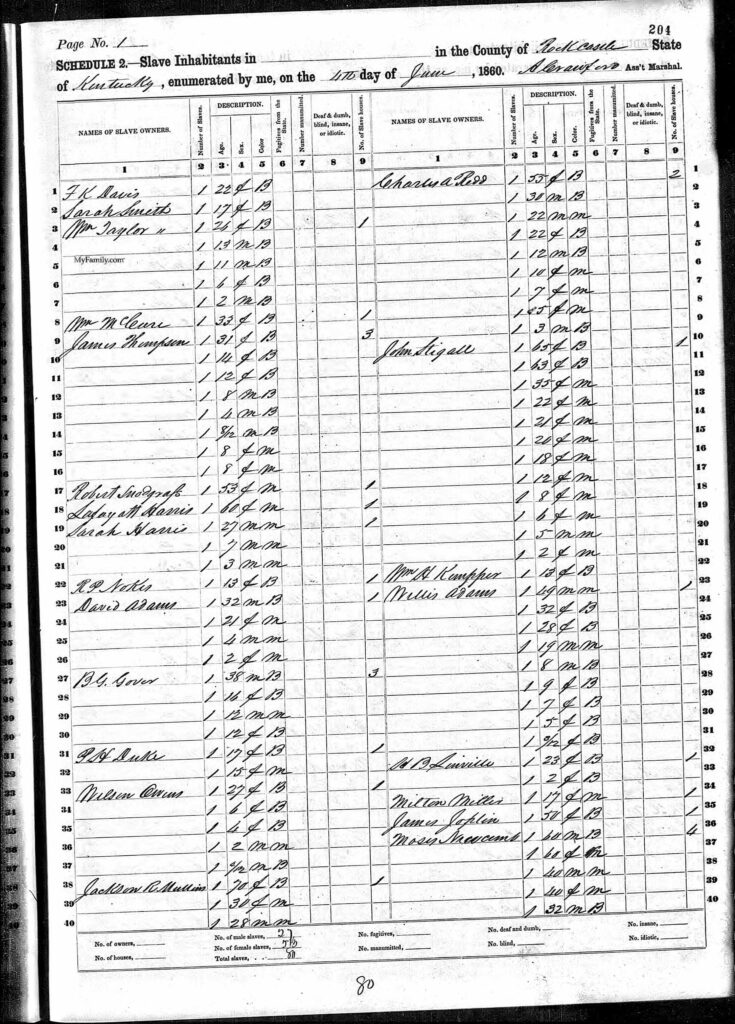 204
Page No. 1
SCHEDULE 2.—Slave Inhabitants in in the County of Rockcastle State
of Kentucky, enumerated by me, on the 4th day of June, 1860. A Crawford Ass't Marshal.
NAMES OF SLAVE OWNERS. Number of Slaves. DESCRIPTION. Age. Sex. Color. Fugitives from the State. Number manumitted. Deaf & dumb, blind, insane, or idiotic. No. of Slave houses.
1 2 3 4 5 6 7 8 9
1 F K Davis 1 22 f B
2 Sarah Smith 1 17 f B
3 Wm Taylor " 1 26 f B 1
4 1 13 m B
MyFamily.com
5 1 11 m B
6 1 6 f B
7 1 2 m B
8 Wm McCure 1 33 f B 1
9 James Thompson 1 31 f B 3
10 1 14 f B
11 1 12 f B
12 1 8 m B
13 1 4 m B
14 1 8/12 m B
15 1 8 f m
16 1 8 f m
17 Robert Snodgrass 1 53 f m 1
18 Lafayatt Harris 1 60 f m 1
19 Sarah Harris 1 27 m m 1
20 1 7 m m
21 1 3 m m
22 R P Nokes 1 13 f B 1
23 David Adams 1 32 m B 1
24 1 21 f m
25 1 4 m m
26 1 2 f m
27 B G Gover 1 38 m B 3
28 1 16 f B
29 1 12 m m
30 1 12 f B
31 P H Duke 1 17 f B 1
32 1 15 f m
33 Wilson Owens 1 27 f B 1
34 1 6 f B
35 1 4 f B
36 1 2 m m
37 1 m B
38 Jackson R Mullins 1 70 f B 1
39 1 30 f m
40 1 28 m m
NAMES OF SLAVE OWNERS. Number of Slaves. DESCRIPTION. Age. Sex. Color. Fugitives from the State. Number manumitted. Deaf & dumb, blind, insane, or idiotic. No. of Slave houses.
1 2 3 4 5 6 7 8 9
Charles A Redd 1 55 f B 2 1
1 30 m B 2
1 22 m m 3
1 22 f B 4
1 12 m B 5
1 10 f m 6
1 7 f m 7
1 f m 8
1 3 m B 9
John Stigall 1 65 f B 1 10
1 63 f B 11
1 35 f m 12
1 22 f m 13
1 21 f m 14
1 20 f m 15
1 18 f m 16
1 12 f m 17
1 8 f m 18
1 6 f m 19
1 5 m m 20
1 2 f m 21
Wm H Kempper 1 13 f B 22
Willis Adams 1 49 m m 1 23
1 32 f B 24
1 28 f B 25
1 19 m m 26
1 8 m B 27
1 9 f B 28
1 7 f B 29
1 5 f B 30
1 9/12 f B 31
B Linville 1 23 f B 1 32
1 2 f B 33
Milton Miller 1 17 f m 1 34
James Joplin 1 50 f B 1 35
Moses Newcomb 1 60 m B 4 36
1 60 f m 37
1 40 m m 38
1 40 f m 39
1 32 m B 40
No. of owners, No. of male slaves, 27 No. fugitives, No. deaf and dumb, No. insane,
No. of houses, No. of female slaves, 53 No. manumitted, No. blind, No. idiotic,
Total slaves, 80
80